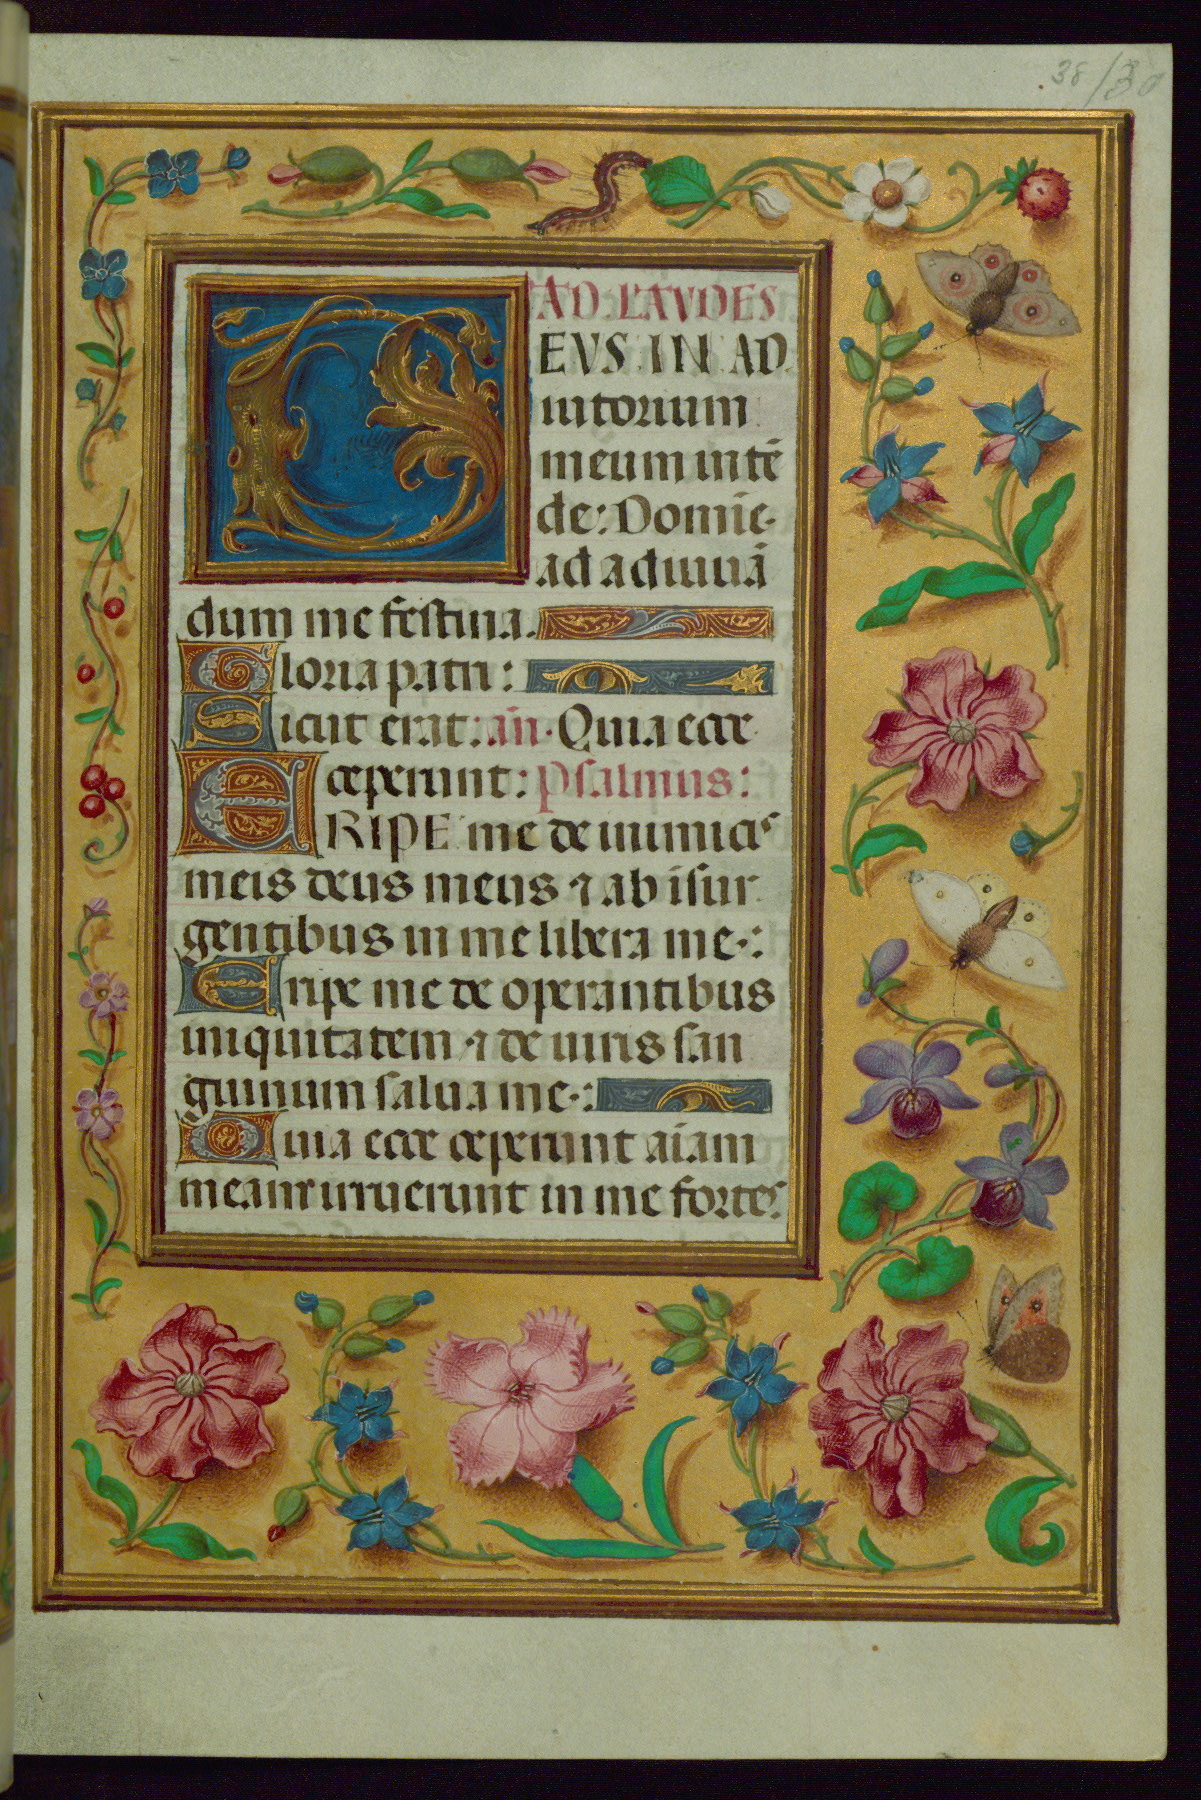 38 / 30
AD LAVDES
DEVS IN AD
iutorium
meum intē
de: Domīe·
ad adiuuā
dum me festina.
Gloria patri:
Sicut erat: añ· Quia ecce
ceperunt: Psalmus:
ERIPE me de inimicis
meis deus meus ⁊ ab isur
gentibus in me libera me·:
Eripe me de operantibus
iniquitatem ⁊ de uiris san
guinum salua me·:
Quia ecce ceperunt aīam
meam irruerunt in me fortes